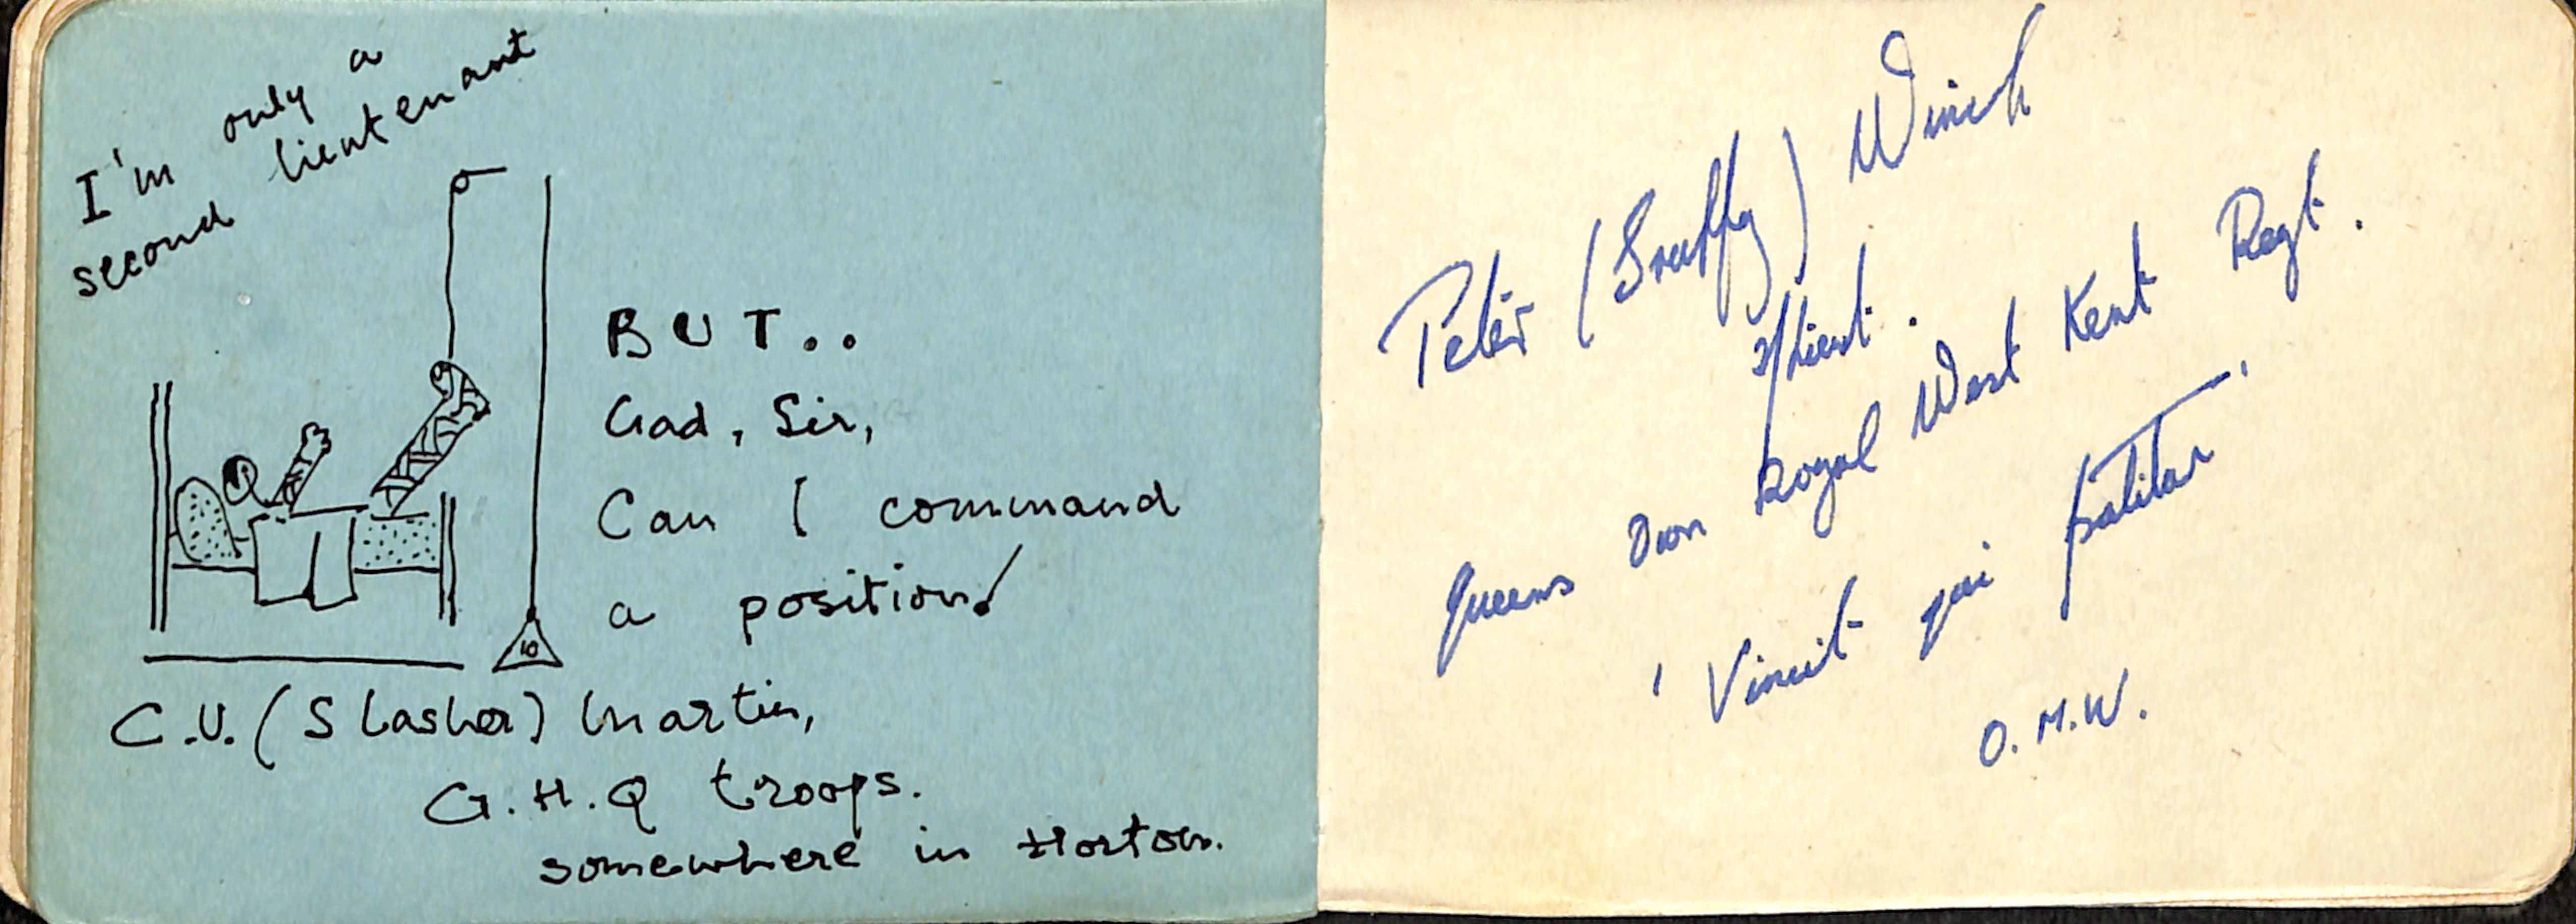 I'm only a
second lieutenant
BUT..
Gad, Sir,
Can I command
a position!
10
C.V. (Slasher) Martin,
G.H.Q troops.
somewhere in Horton.
Peter (Snuffy) Winch
2/Lieut.
Queens Own Royal West Kent Regt.
'Vincit qui patitur'
O.M.W.